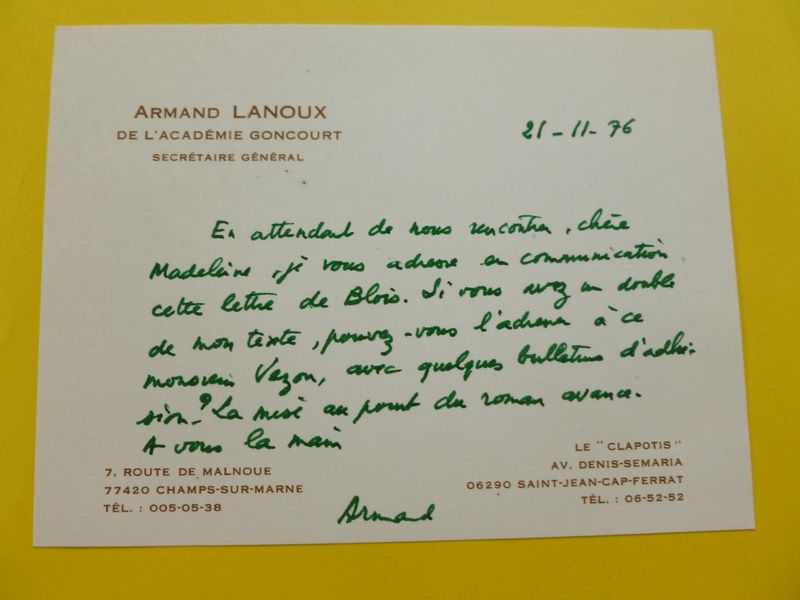 ARMAND LANOUX
DE L'ACADÉMIE GONCOURT
SECRÉTAIRE GÉNÉRAL
21-11-76
En attendant de nous rencontrer, chère
Madeleine, je vous adresse en communication
cette lettre de Blois. Si vous avez un double
de mon texte, pouvez-vous l'adresser à ce
monsieur Vezon, avec quelques bulletins d'adhé-
sion? La mise au point du roman avance.
A vous la main
7, ROUTE DE MALNOUE
77420 CHAMPS-SUR-MARNE
TÉL. : 005-05-38
LE "CLAPOTIS"
AV. DENIS-SEMARIA
06290 SAINT-JEAN-CAP-FERRAT
TÉL. : 06-52-52
Armand